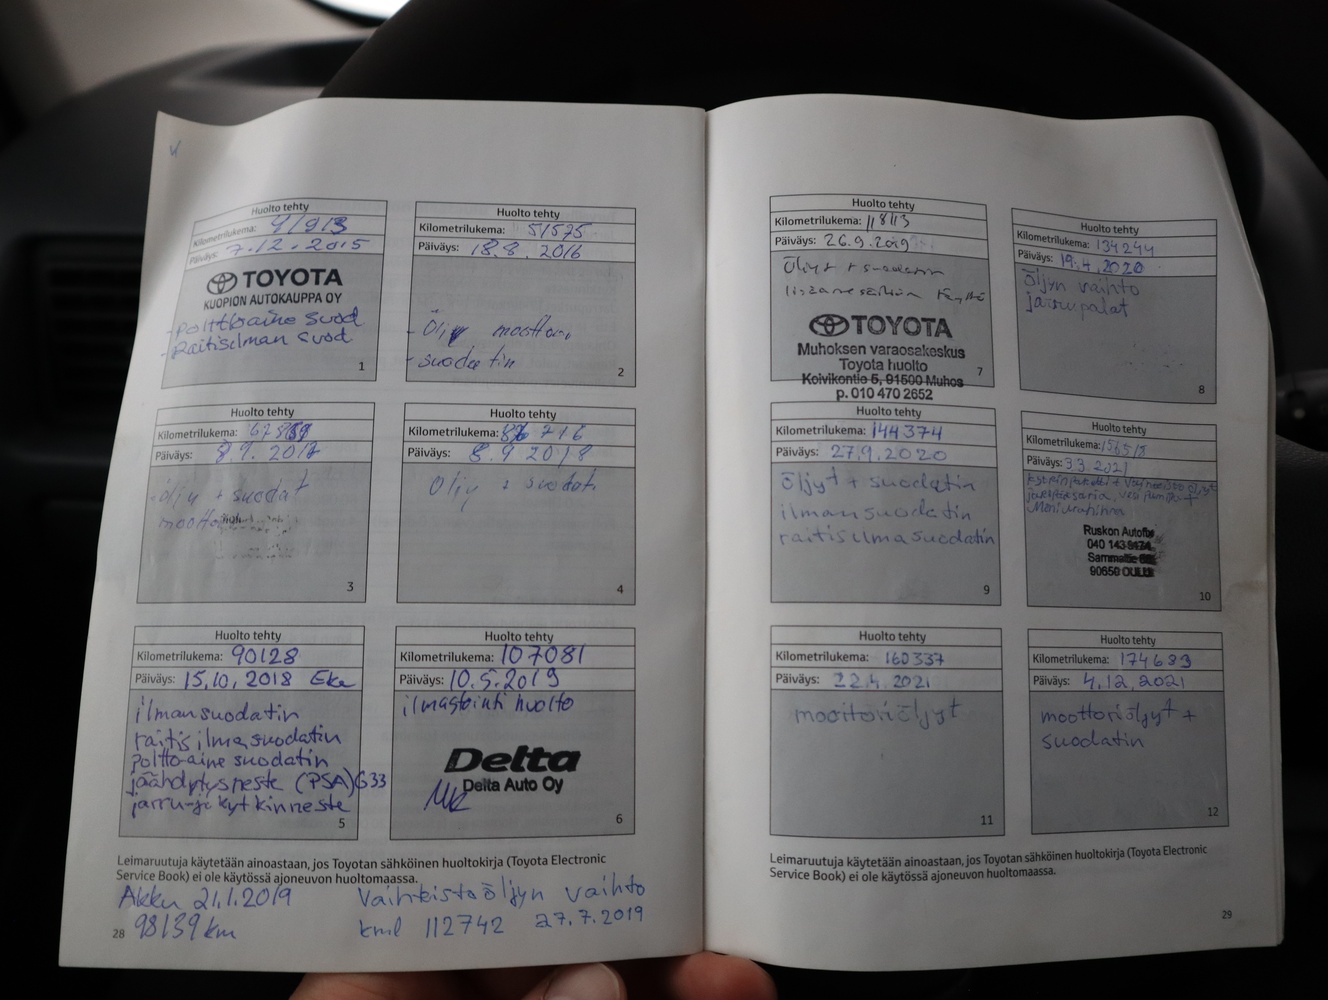 Huolto tehty
Kilometrilukema:
Päiväys: 7.12.2015
TOYOTA
KUOPION AUTOKAUPPA OY
- Polttoaine suod
- Raitisilman suod
1
Huolto tehty
Kilometrilukema: 51575
Päiväys: 18.8.2016
- Öljy moottori
- suodatin
2
Huolto tehty
Kilometrilukema:
Päiväys: 8.9.2017
- öljy + suodat
3
Huolto tehty
Kilometrilukema: 86 716
Päiväys: 8.9 2018
Öljy + suodat.
4
Huolto tehty
Kilometrilukema: 90128
Päiväys: 15.10.2018 Eke
ilmansuodatin
raitisilmasuodatin
poltto-aine suodatin
jäähdytysneste (PSA) G33
jarru-ja kytkinneste
5
Huolto tehty
Kilometrilukema: 107081
Päiväys: 10.5.2019
ilmastointi huolto
Delta
Delta Auto Oy
6
Leimaruutuja käytetään ainoastaan, jos Toyotan sähköinen huoltokirja (Toyota Electronic
Service Book) ei ole käytössä ajoneuvon huoltomaassa.
Akku 21.1.2019
98139 km
Vaihteistoöljyn vaihto
kml 112742 27.7.2019
28
Huolto tehty
Kilometrilukema: 118113
Päiväys: 26.9.2019
Öljyt + suodatin
TOYOTA
Muhoksen varaosakeskus
Toyota huolto
Koivikontie 5, 91500 Muhos
p. 010 470 2652
7
Huolto tehty
Kilometrilukema: 134244
Päiväys: 19.4.2020
öljyn vaihto
jarrupalat
8
Huolto tehty
Kilometrilukema: 144374
Päiväys: 27.9.2020
öljyt + suodatin
ilmansuodatin
raitisilmasuodatin
9
Huolto tehty
Kilometrilukema: 156518
Päiväys: 3.3.2021
Ruskon Autofix
040 143
90650 OULU
10
Huolto tehty
Kilometrilukema: 160337
Päiväys: 22.4.2021
moottoriöljyt
11
Huolto tehty
Kilometrilukema: 174683
Päiväys: 4.12.2021
moottoriöljyt +
suodatin
12
Leimaruutuja käytetään ainoastaan, jos Toyotan sähköinen huoltokirja (Toyota Electronic
Service Book) ei ole käytössä ajoneuvon huoltomaassa.
29